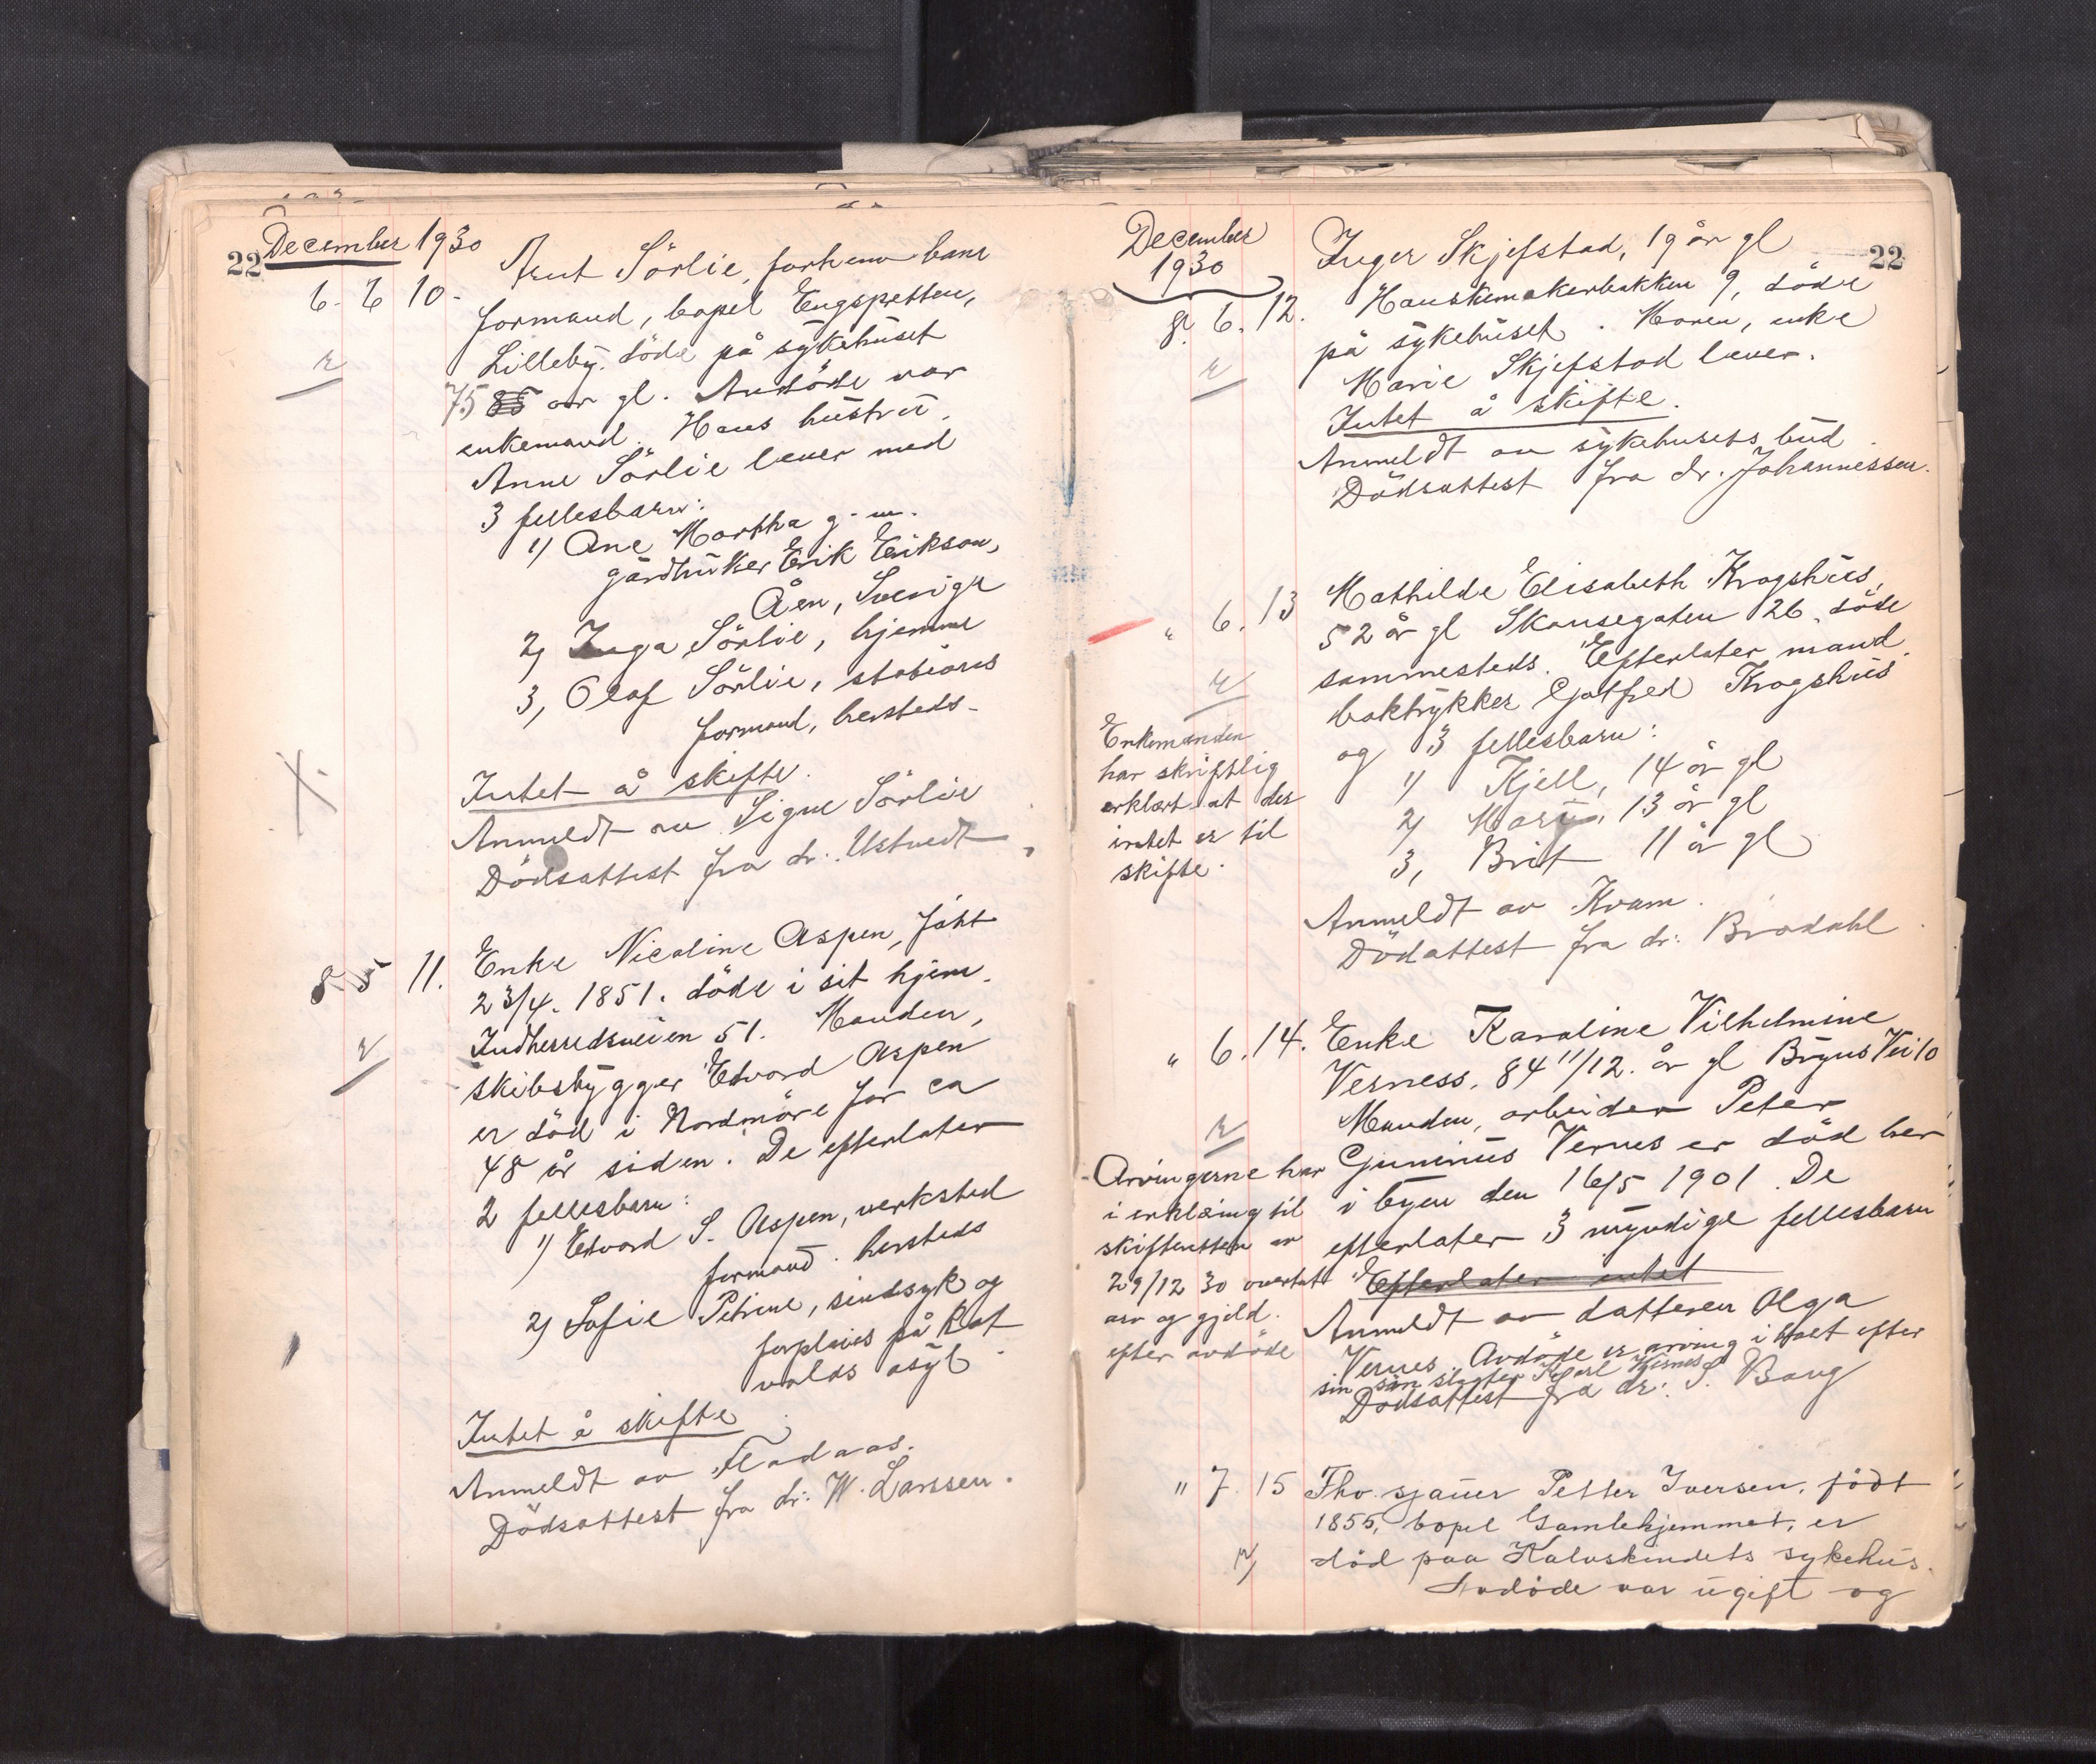 22 December 1930
6. 6 10. Arnt Sörlie, forhenv bane
formand, bopel Engspretten,
Lilleby. döde på sykehuset
75 85 år gl. Avdöde var
enkemand. Hans hustru
Anne Sörlie lever med
3 fellesbarn:
1) Ane Martha g. m.
gårdbruker Erik Erikson,
Åen, Sverige
2) Inga Sörlie, hjemme
3, Olaf Sörlie, stations
formand, hersteds.
Intet å skifte.
Anmeldt av Signe Sörlie
Dödsattest fra dr. Ustvedt
8 5 11. Enke Nicoline Aspen, født
23/4. 1851. döde i sit hjem.
Indherredsveien 51. Manden,
skibsbygger Edvard Aspen
er död i Nordmöre for ca
48 år siden. De efterlater
2 fellesbarn:
1) Edvard S. Aspen, verksted
formand. hersteds
2) Sofie Petrine, sindsyk og
forpleies på Rot
volds asyl.
Intet å skifte
Anmeldt av Fladaas.
Dödsattest fra dr. W. Larssen.
December
1930
22
8. 6. 12. Inger Skjefstad, 19 år gl
Hanskemakerbakken 9, döde
på sykehuset. Moren, enke
Marie Skjefstad lever.
Intet å skifte.
Anmeldt av sykehusets bud
Dödsattest fra dr. Johannessen.
" 6. 13 Mathilde Elisabeth Krogshus,
52 år gl Skansegaten 26, döde
sammesteds. Efterlater mand
boktrykker Gotfred Krogshus
og 3 fellesbarn:
1) Kjell, 14 år gl
2) Mary, 13 år gl
3, Brit 11 år gl
Enkemanden
har skriftlig
erklært at der
intet er til
skifte.
Anmeldt av Kvam.
Dödattest fra dr. Brodahl
" 6. 14. Enke Karoline Vilhelmine
Verness. 84 11/12. år gl Bryns Vei 10
Manden, arbeider Peter
Guninius Vernes er död her
i byen den 16/5 1901. De
efterlater 3 myndige fellesbarn
Efterlater intet
Anmeldt av datteren Olga
Vernes. Avdöde er arving i boet efter
sin sön slagter Karl Vernes
Dödsattest fra dr. S. Bang
Arvingerne har
i erklæring til
skifteretten av
29/12 30 overtat
arv og gjeld
efter avdöde
" 7. 15 Fhv. sjauer Petter Iversen, født
1855, bopel Gamlehjemmet, er
død paa Kalvskindets sykehus.
Avdøde var ugift og